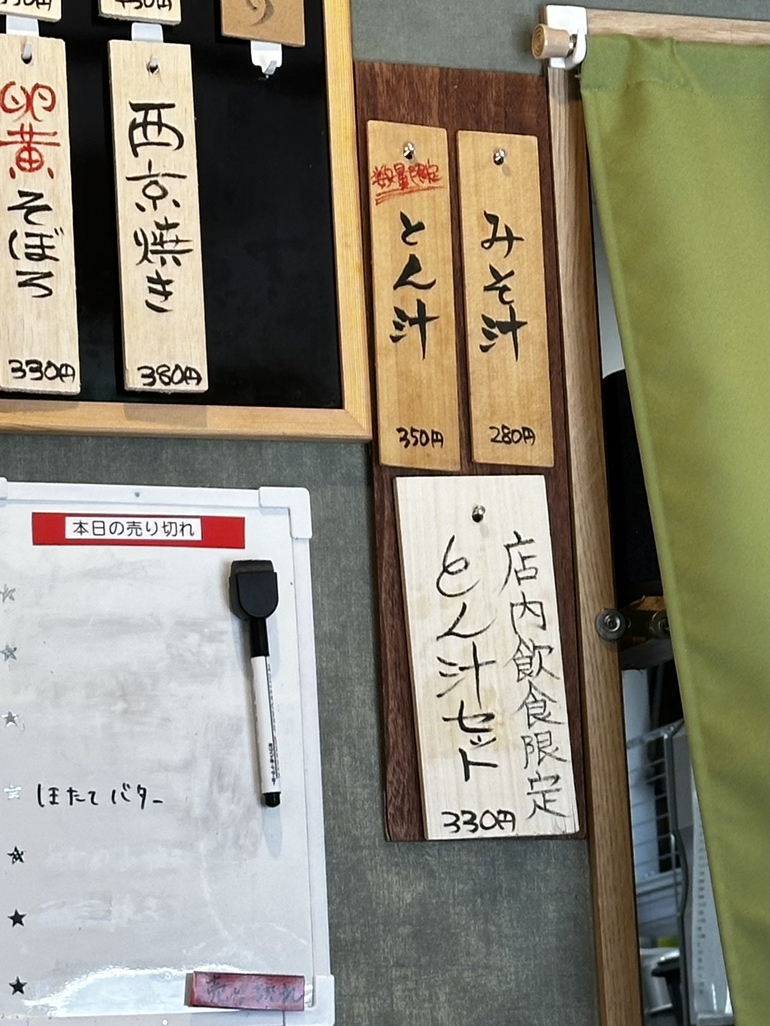 卵黄そぼろ
330円
西京焼き
380円
数量限定
とん汁
350円
みそ汁
280円
店内飲食限定
とん汁セット
330円
本日の売り切れ
ほたてバター